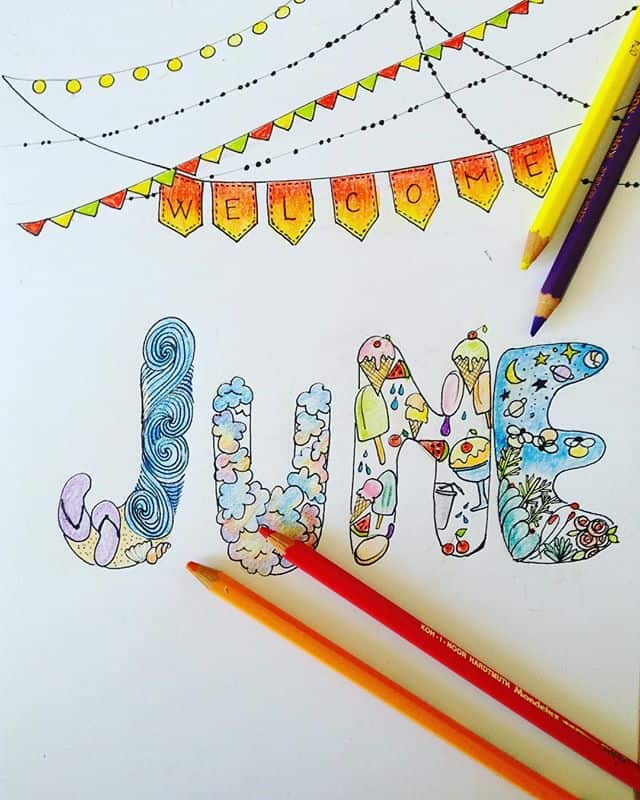 WELCOME
JUNE
KOH-I-NOOR HARDTMUTH Mondeluz
KOH-I